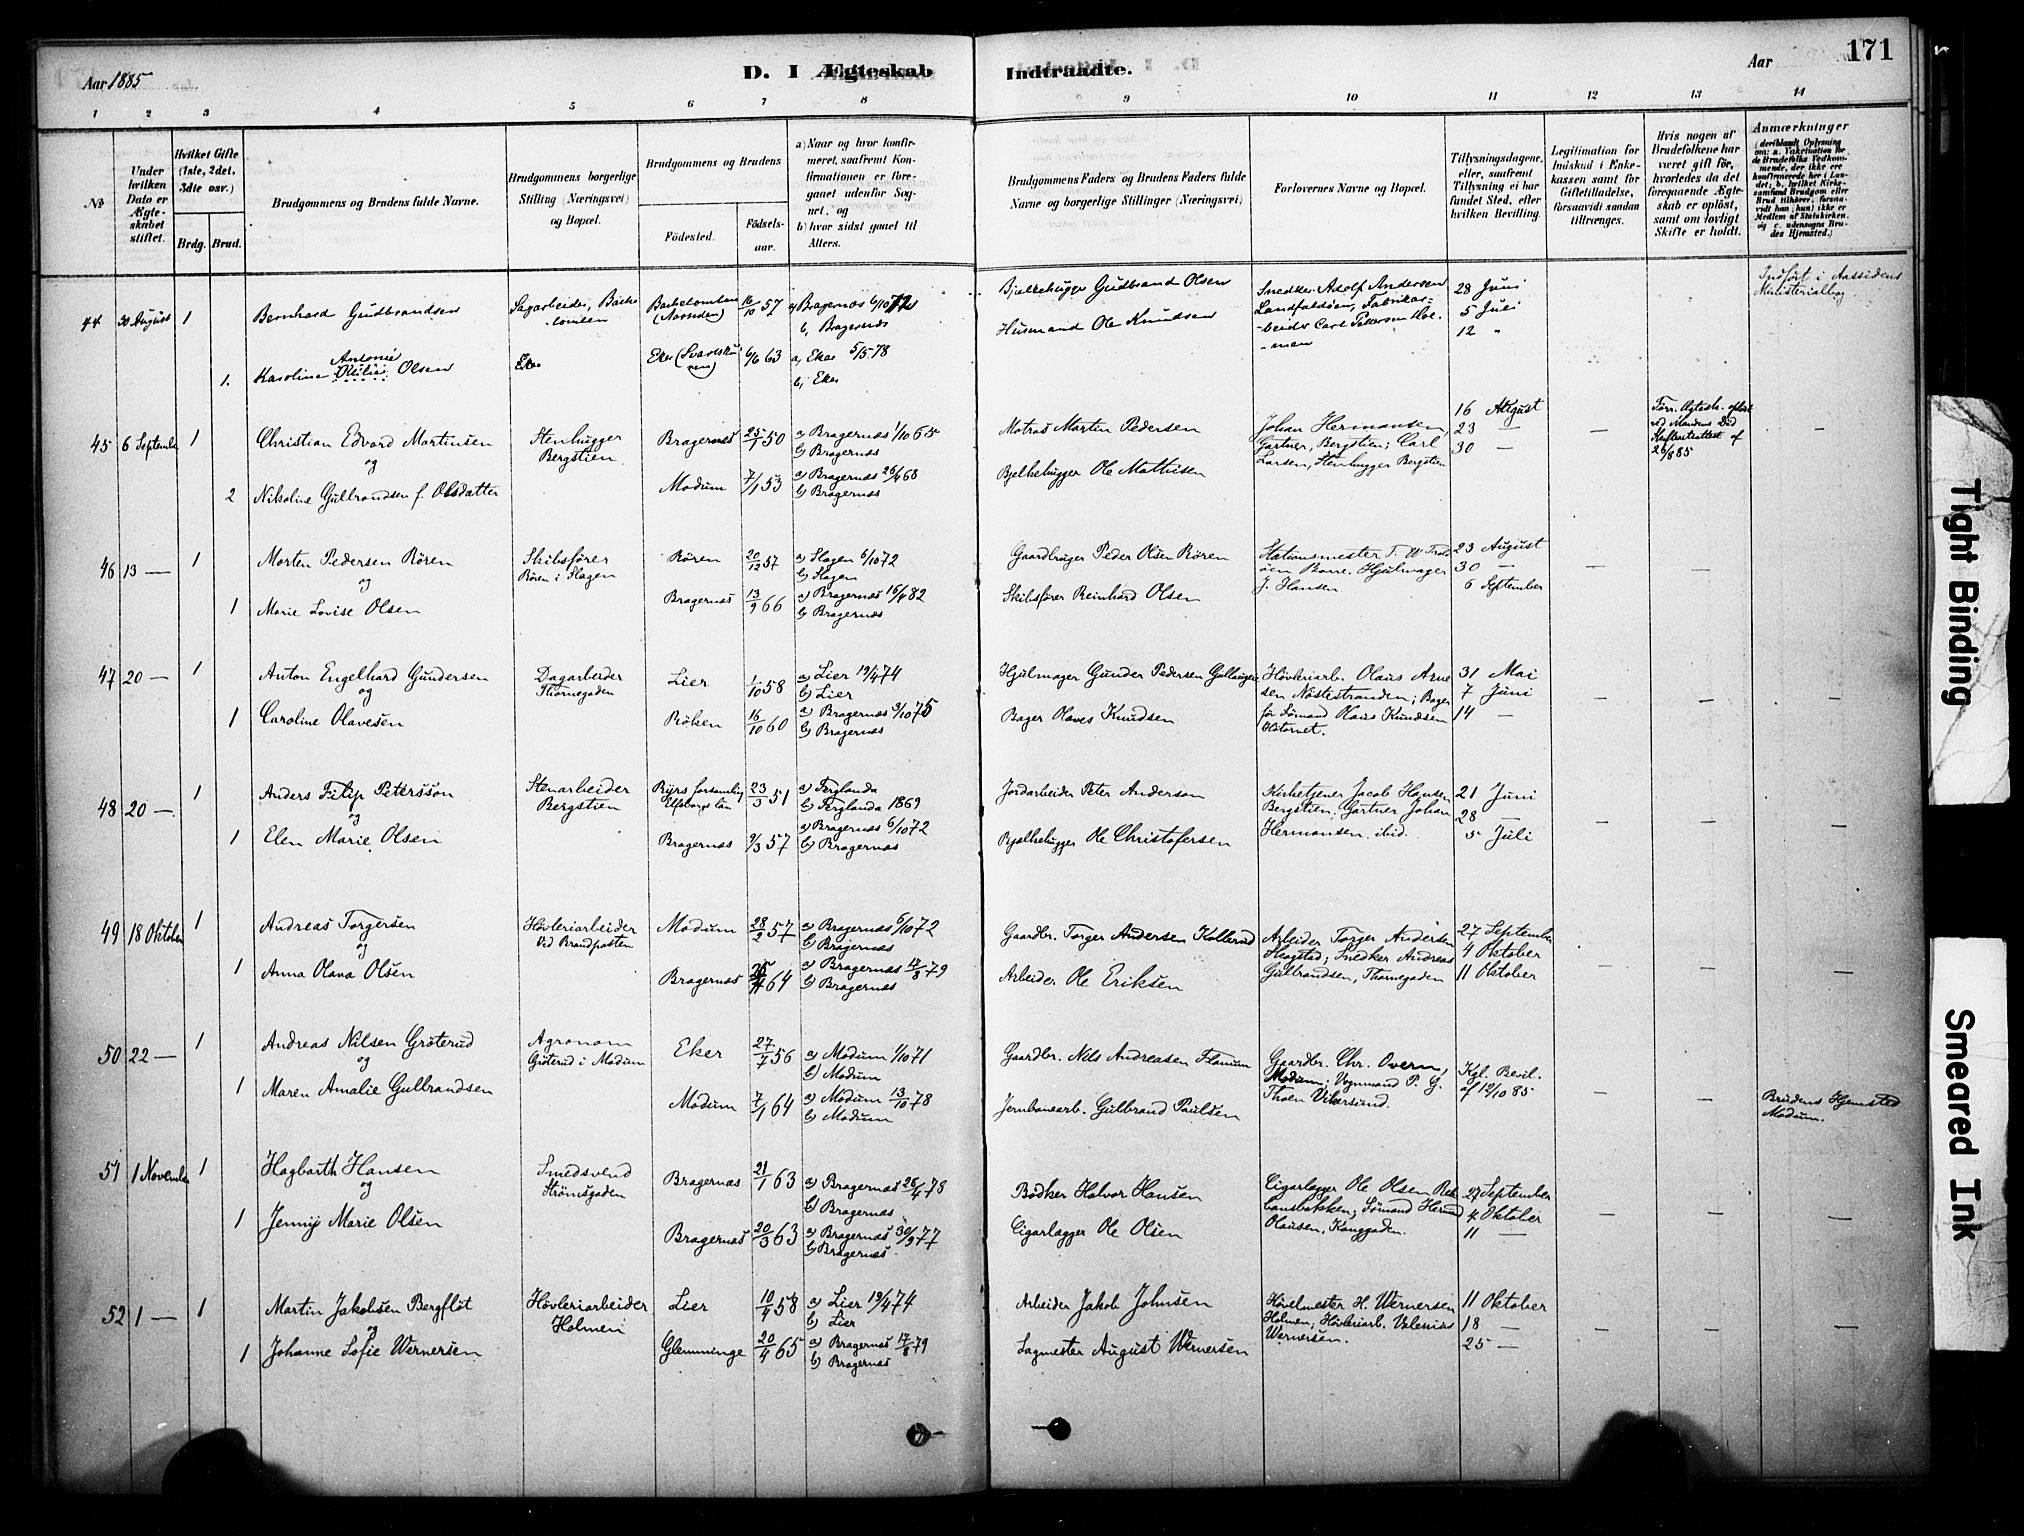 171
Aar 1885
D. I Ægteskab
Indtraadte.
Aar
1 2 3 4 5 6 7 8 9 10 11 12 13 14
No
Under hvilken Dato er Ægteskabet stiftet.
Hvilket Gifte (1ste, 2det, 3die osv.)
Brdg. Brud.
Brudgommens og Brudens fulde Navne.
Brudgommens borgerlige Stilling (Næringsvei) og Bopæl.
Brudgommens og Brudens
Fødested.
Fødselsaar.
a) Naar og hvor konfirmeret, saafremt Konfirmationen er foregaaet udenfor Sognet, og
b) hvor sidst gaaet til Alters.
Brudgommens Faders og Brudens Faders fulde Navne og borgerlige Stillinger (Næringsvei)
Forlovernes Navne og Bopæl.
Tillysningsdagene, eller, saafremt Tillysning ei har fundet Sted, efter hvilken Bevilling.
Legitimation for Indskud i Enkekassen samt for Giftetilladelse, forsaavidt saadan tiltrænges.
Hvis nogen af Brudefolkene har været gift før, hvorledes da det foregaaende Ægteskab er opløst, samt om lovligt Skifte er holdt.
Anmærkninger
(deriblandt Oplysning om: a. Vakcination for de Brudefolks Vedkommende, der ikke ere konfirmerede her i Landet; b. hvilket Kirkesamfund Brudgom eller Brud tilhører, forsaavidt han (hun) ikke er Medlem af Statskirken, og c. udensogns Brudes Hjemsted.)
44 30 August 1 Bernhard Gudbrandsen
Sagarbeider,
16/10 57
a) Bragernes 6/10 72
b) Bragernes
Bjelkehugger Gudbrand Olsen
Snedker Adolf Andersen
Landfaldøen, Fabrikar-
-beider Carl Petersen Hol-
-men
28 Juni
5 Juli
12 "
Indført i Aassidens
Ministerialbog
1. Karoline Antonie Otilie Olsen
Eker
6/6 63
a) Eker 5/5 78
b) Eker
Husmand Ole Knudsen
45 6 September 1 Christian Edvard Martinsen
og
Stenhugger
Bergstien
Bragernes 25/1 50
a) Bragernes 1/10 65
b) Bragernes
Matros Martin Pedersen
Johan Hermansen,
Gartner, Bergstien; Carl
Larsen, Stenhugger Bergstien
16 August
23 —
30 —
—
ved Mandens Død
26/8 85
—
2 Nikoline Gulbrandsen f. Olsdatter
Modum 7/1 53
a) Bragernes 26/4 68
b) Bragernes
Bjelkehugger Ole Mathisen
46 13 — 1 Morten Pedersen Røren
og
Skibsfører
Røren i Slagen
Røren 20/12 57
a) Slagen 6/10 72
b) Slagen
Gaardbruger Peder Olsen Røren
Stationsmester
Borre. Hjulmager
J. Hansen
23 August
30 —
6 September
— —
1 Marie Lovise Olsen
Bragernes 13/9 66
a) Bragernes 16/4 82
b) Bragernes
Skibsfører Reinhard Olsen
47 20 — 1 Anton Engelhard Gundersen
og
Dagarbeider
Thornegaden
Lier 1/10 58
a) Lier 19/4 74
b) Lier
Hjulmager Gunder Pedersen
Høvleriarb. Olaus Arne
sen Nøstestranden; Bager
før Sømand Olaus Knudsen
31 Mai
7 Juni
14 —
— — —
1 Caroline Olavesen
Røken 16/10 60
a) Bragernes 3/10 75
b) Bragernes
Bager Olaves Knudsen
48 20 — 1 Anders Filip Petersson
og
Stenarbeider
Bergstien
Elfsborgs län
23/3 51
a) Ferglanda
b) Ferglanda 1869
Jordarbeider Peter Anderson
Kirketjener Jacob Hansen
Bergstien; Gartner Johan
Hermansen, ibid.
21 Juni
28 —
5 Juli
— — —
1 Elen Marie Olsen
Bragernes 9/3 57
a) Bragernes 6/10 72
b) Bragernes
Bjelkehugger Ole Christofersen
49 18 Oktober 1 Andreas Torgersen
og
Høvleriarbeider
Ved Brandposten
Modum 28/2 57
a) Bragernes 6/10 72
b) Bragernes
Gaardbr. Torger Andersen Kollerud
Arbeider Torger Andersen
Snedker Andreas
Gulbrandsen, Thornegaden
27 September
4 Oktober
11 Oktober
— — —
1 Anna Olava Olsen
Bragernes 64
a) Bragernes 17/8 79
b) Bragernes
Arbeider Ole Eriksen
50 22 — 1 Andreas Nilsen Grøterud
og
Agronom
Grøterud i Modum
Eker 27/7 56
a) Modum 1/10 71
b) Modum
Gaardbr. Nils Andreasen
Gaardbr. Chr. Overn,
Modum; Vognmand P. G.
Thoen Vikersund.
Kgl. Bevil.
af 12/10 85
— —
Brudens Hjemsted
Modum.
1 Maren Amalie Gulbrandsen
Modum 7/1 64
a) Modum 13/10 78
b) Modum
Jernbanearb. Gulbrand Paulsen
51 1 November 1 Hagbarth Hansen
og
Smedsvend
Strømsgaden
Bragernes 21/1 63
a) Bragernes 28/4 78
b) Bragernes
Bødker Halvor Hansen
Cigarlægger Ole Olsen
Sømand
Olausen, Konggaden.
27 September
4 Oktober
11 —
— — —
1 Jenny Marie Olsen
Bragernes 20/3 63
a) Bragernes 30/9 77
b) Bragernes
Cigarlægger Ole Olsen
52 1 — 1 Martin Jakobsen Bergfløt
og
Høvleriarbeider
Holmen
Lier 10/4 58
a) Lier 19/4 74
b) Lier
Arbeider Jakob Johnsen
Høvelmester H. Wernersen
Holmen; Høvleriarb.
Wernersen.
11 Oktober
18 —
25 —
— — —
1 Johanne Sofie Wernersen
Glemminge 20/4 65
a) Bragernes 17/8 79
b) Bragernes
Sagmester August Wernersen
Tight Binding
Smeared Ink